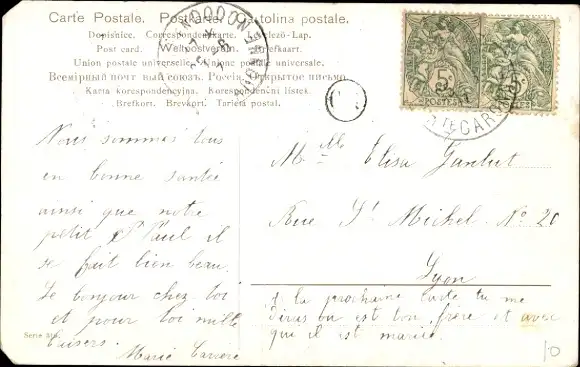 Carte Postale. Postkarte. Cartolina postale.
Dopisnice. Correspondenzkarte. Levelező-Lap.
Post card. Weltpostverein. Briefkaart.
Union postale universelle. Unione postale universale.
Всемірный почт вый союзъ. Россія. Открытое письмо.
Karta korespondencyjna. Korespondenční listek.
Brefkort. Brevkort. Tarjetă postal.
5c
POSTES
Nous sommes tous
en bonne santée
ainsi que notre
petit St Paul il
se fait bien beau.
Le bonjour chez toi
et pour toi mille
baisers.
Marie Carrere
Serie
Mlle Elisa
Rue St Michel No 20
Lyon
à la prochaine carte tu me
diras ou est ton frère et avec
qui il est marié.
10